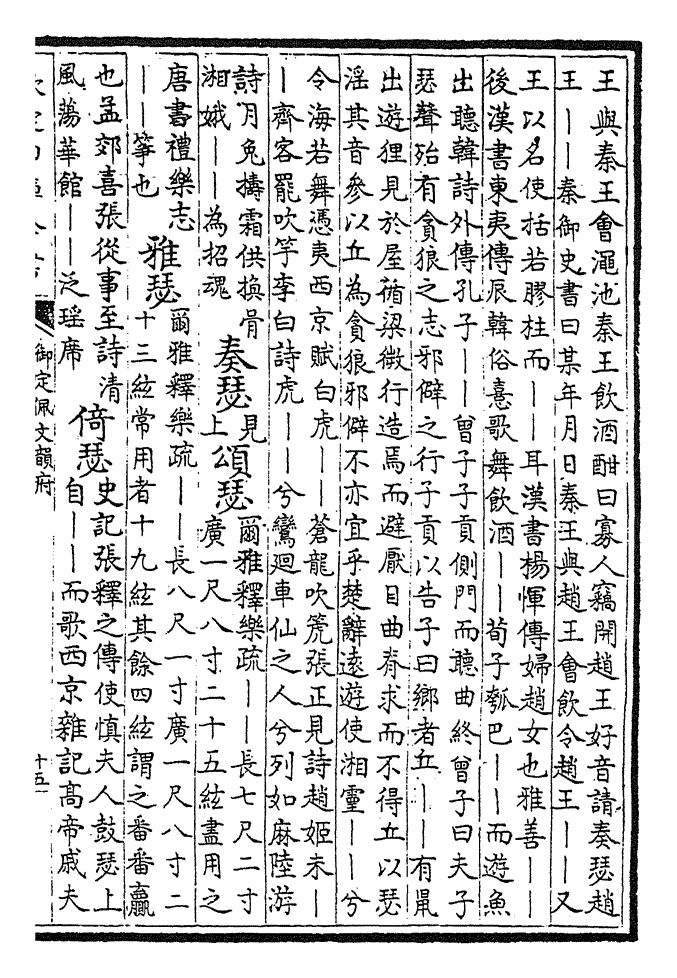 王與秦王會澠池秦王飲酒酣曰寡人竊聞趙王好音請奏瑟趙
王——秦御史書曰某年月日秦王與趙王會飲令趙王——又
王以名使括若膠柱而——耳漢書楊惲傳婦趙女也雅善——
後漢書東夷傳辰韓俗憙歌舞飲酒——荀子瓠巴——而遊魚
出聽韓詩外傳孔子——曾子子貢側門而聽曲終曾子曰夫子
瑟聲殆有貪狼之志邪僻之行子貢以告子曰鄉者丘——有鼠
出遊狸見於屋循梁微行造焉而避厭目曲脊求而不得丘以瑟
淫其音參以丘為貪狼邪僻不亦宜乎楚辭遠遊使湘靈——兮
令海若舞憑夷西京賦白虎——蒼龍吹箎張正見詩趙姬未—
—齊客罷吹竽李白詩虎——兮鸞廻車仙之人兮列如麻陸游
詩月兔擣霜供換骨
湘娥——為招魂
奏瑟
見上
頌瑟
爾雅釋樂疏——長七尺二寸
廣一尺八寸二十五絃盡用之
唐書禮樂志
——箏也
雅瑟
爾雅釋樂疏——長八尺一寸廣一尺八寸二
十三絃常用者十九絃其餘四絃謂之番番贏
也孟郊喜張從事至詩清
風蕩華館——泛瑤席
倚瑟
史記張釋之傳使慎夫人鼓瑟上
自——而歌西京雜記高帝戚夫
御定佩文韻府
十五